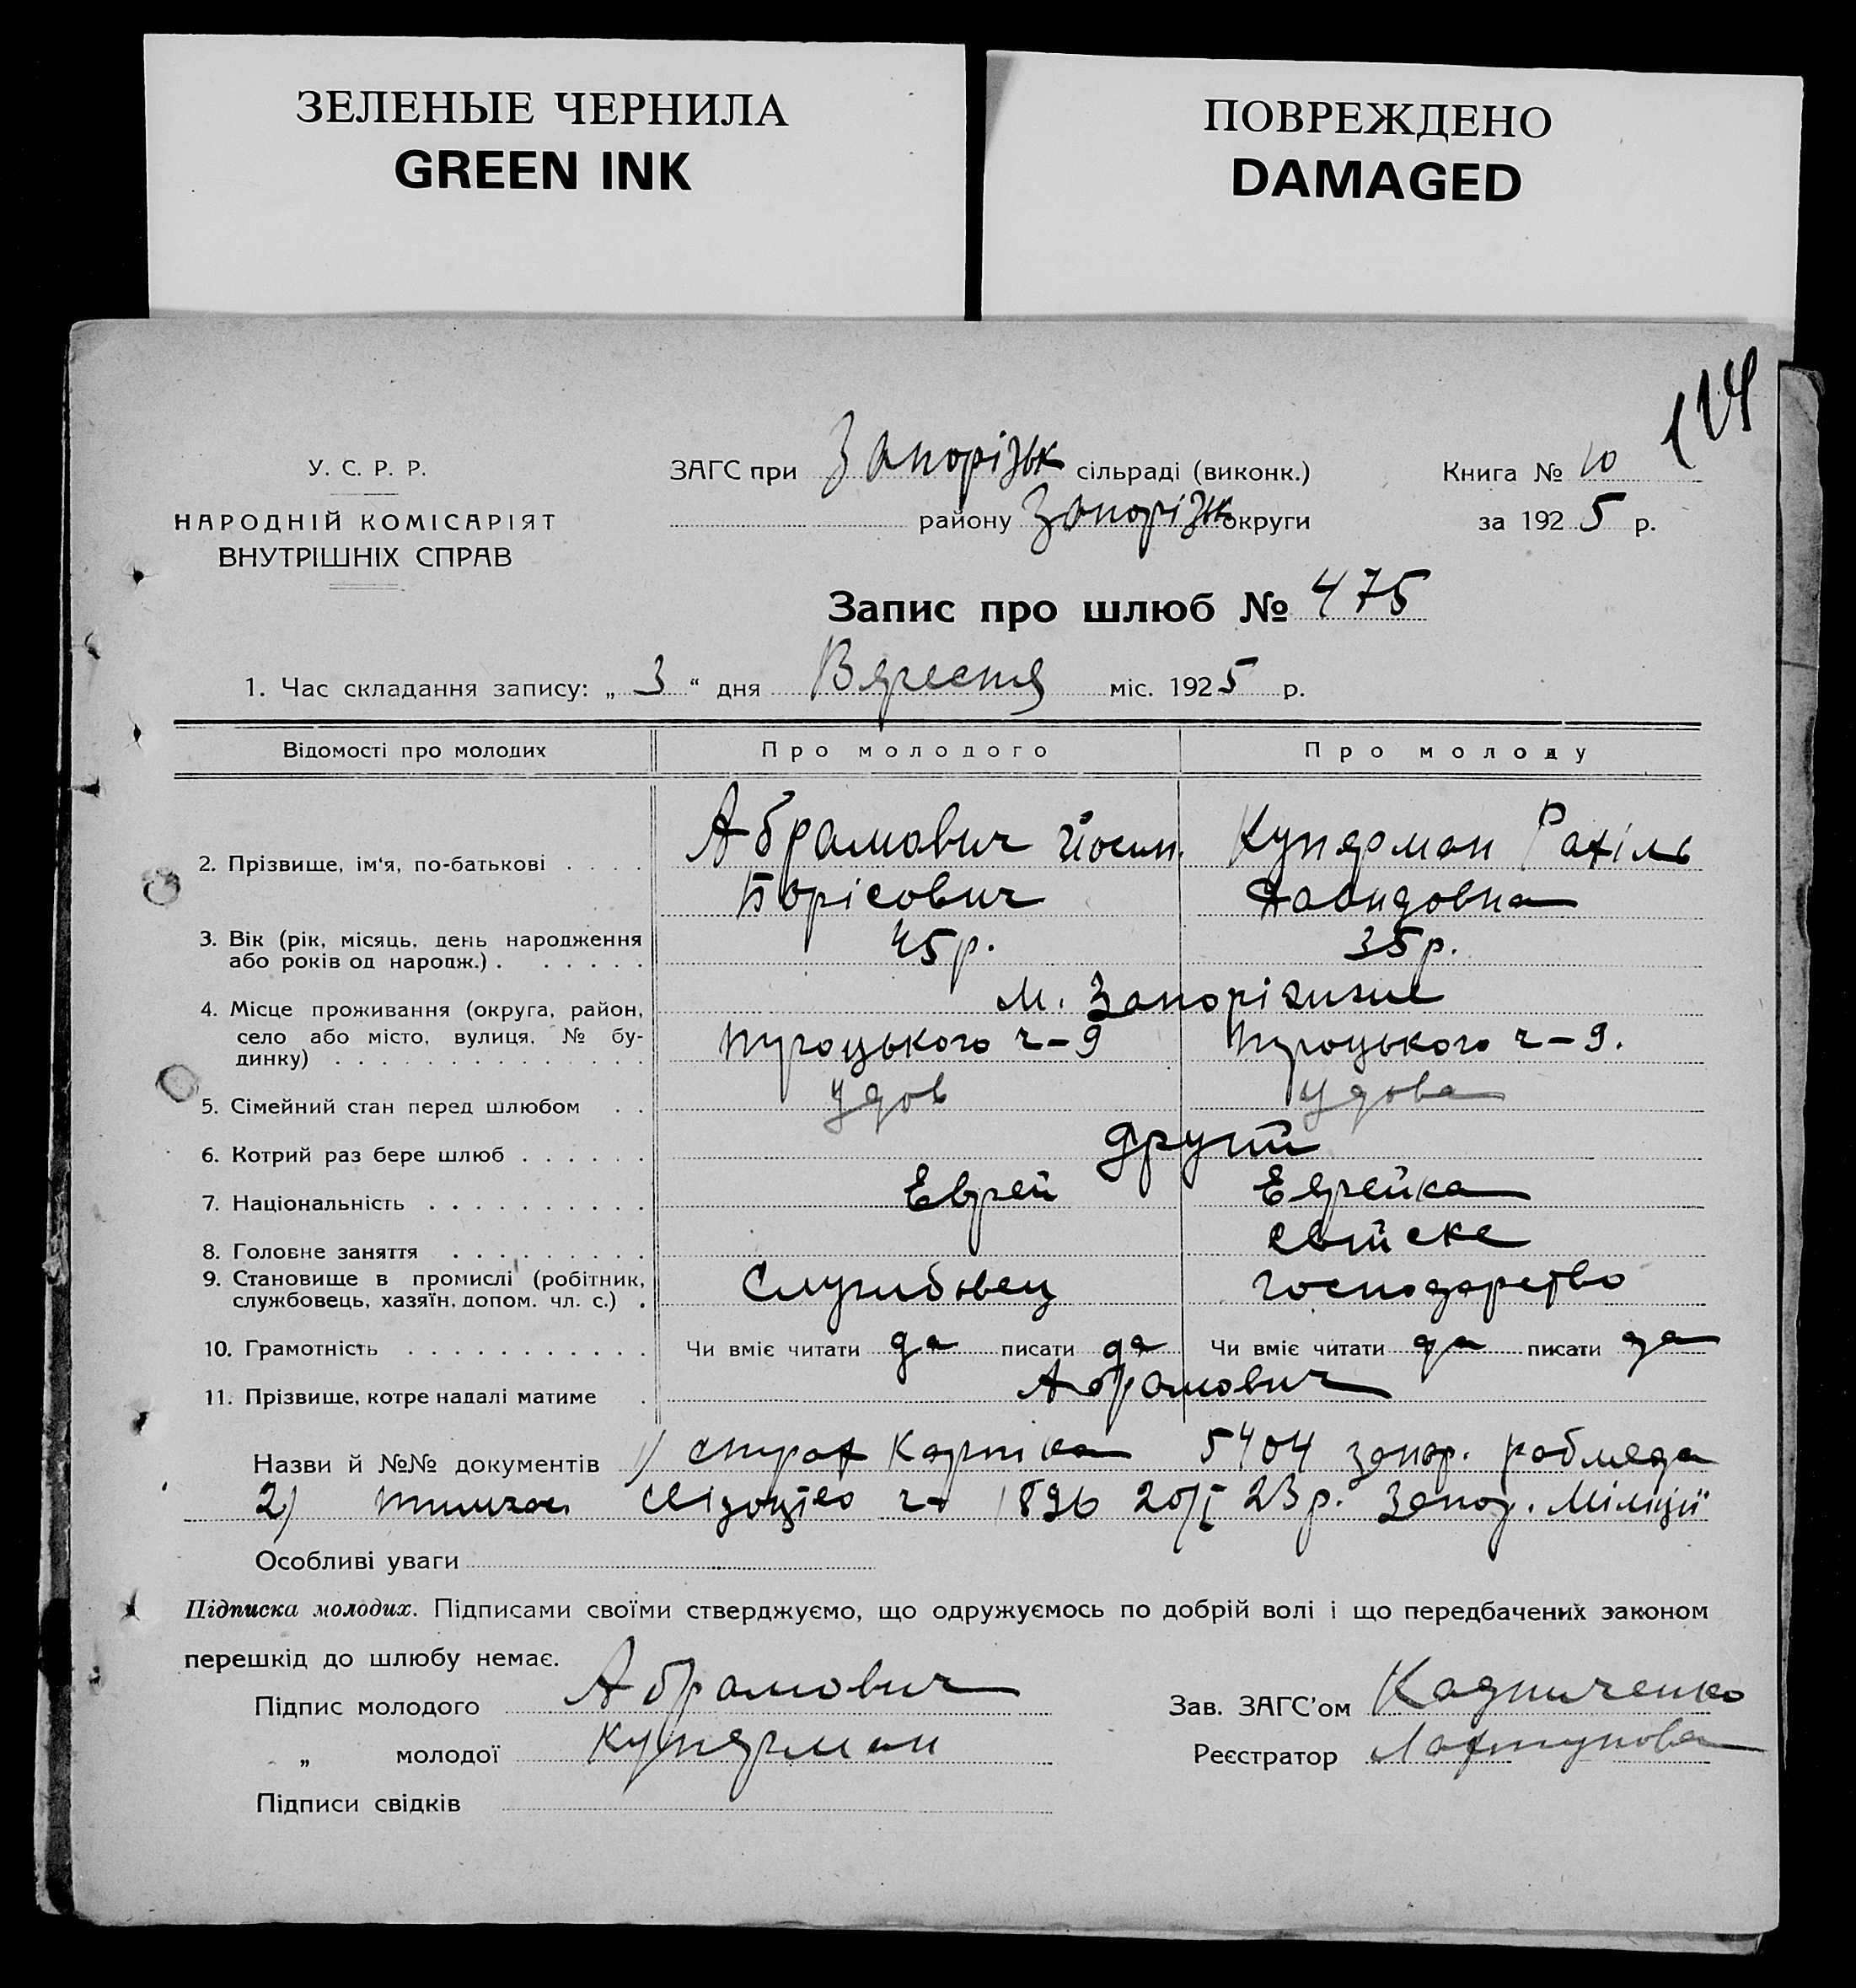 ЗЕЛЕНЫЕ ЧЕРНИЛА
GREEN INK
ПОВРЕЖДЕНО
DAMAGED
У. С. Р. Р.
НАРОДНІЙ КОМІСАРІЯТ
ВНУТРІШНІХ СПРАВ
ЗАГС при Запорізьк сільраді (виконк.)
району Запорізьк округи
Книга № 10
за 1925 р.
Запис про шлюб № 475
1. Час складання запису: „ 3 “ дня Вересня міс. 1925 р.
Відомості про молодих Про молодого Про молоду
2. Прізвище, ім'я, по-батькові . . . . Абрамович Йосип. Куперман Рахіль
Борісович Давидовна
3. Вік (рік, місяць, день народження 45 р. 35 р.
або років од народж.) . . . . . .
4. Місце проживання (округа, район, м. Запоріжжє
село або місто, вулиця, № бу-
динку) . . . . . . . . . . . . Троцького ч-9 Троцького ч-9.
5. Сімейний стан перед шлюбом . . удов удова
6. Котрий раз бере шлюб . . . . . . другий
7. Національність . . . . . . . . . . Еврей Еврейка
8. Головне заняття . . . . . . . . .
9. Становище в промислі (робітник,
службовець, хазяїн, допом. чл. с.) . Службовец господарство
10. Грамотність . . . . . . . . . . . Чи вміє читати да писати да Чи вміє читати да писати да
11. Прізвище, котре надалі матиме . Абрамович
Назви й №№ документів 1) страх картка 5404 запор.
2) 1896 20/I 23 р. Запор. Міліції
Особливі уваги
Підписка молодих. Підписами своїми стверджуємо, що одружуємось по добрій волі і що передбачених законом
перешкід до шлюбу немає.
Підпис молодого Абрамович
„ молодої Куперман
Підписи свідків
Зав. ЗАГС'ом
Реєстратор